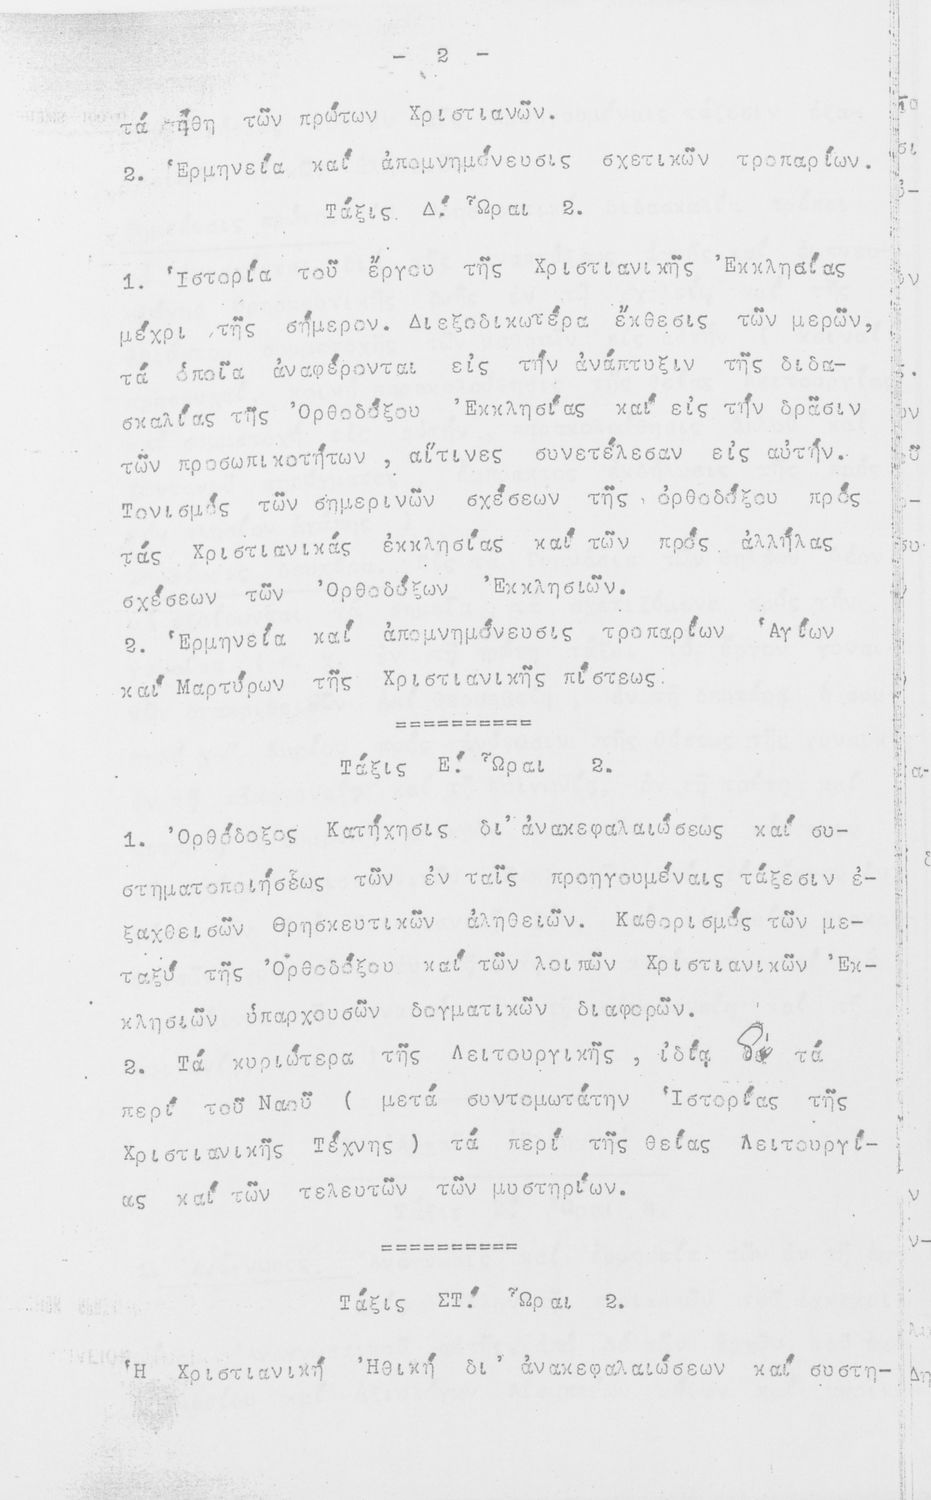 - 2 -
τά ἤθη τῶν πρώτων Χριστιανῶν.
2. Ἑρμηνεία καί ἀπομνημόνευσις σχετικῶν τροπαρίων.
Τάξις Δ! Ὧραι 2.
1. Ἱστορία τοῦ ἔργου τῆς Χριστιανικῆς Ἐκκλησίας
μέχρι τῆς σήμερον. Διεξοδικωτέρα ἔκθεσις τῶν μερῶν,
τά ὁποῖα ἀναφέρονται εἰς τήν ἀνάπτυξιν τῆς διδα-
σκαλίας τῆς Ὀρθοδόξου Ἐκκλησίας καί εἰς τήν δρᾶσιν
τῶν προσωπικοτήτων , αἵτινες συνετέλεσαν εἰς αὐτήν.
Τονισμός τῶν σημερινῶν σχέσεων τῆς ὀρθοδόξου πρός
τάς Χριστιανικάς ἐκκλησίας καί τῶν πρός ἀλλήλας
σχέσεων τῶν Ὀρθοδόξων Ἐκκλησιῶν.
2. Ἑρμηνεία καί ἀπομνημόνευσις τροπαρίων Ἁγίων
καί Μαρτύρων τῆς Χριστιανικῆς πίστεως.
==========
Τάξις Ε! Ὧραι 2.
1. Ὀρθόδοξος Κατήχησις δι' ἀνακεφαλαιώσεως καί συ-
στηματοποιήσεως τῶν ἐν ταῖς προηγουμέναις τάξεσιν ἐ-
ξαχθεισῶν θρησκευτικῶν ἀληθειῶν. Καθορισμός τῶν με-
ταξύ τῆς Ὀρθοδόξου καί τῶν λοιπῶν Χριστιανικῶν Ἐκ-
κλησιῶν ὑπαρχουσῶν δογματικῶν διαφορῶν.
2. Τά κυριώτερα τῆς Λειτουργικῆς , ἰδίᾳ δέ τά
περί τοῦ Ναοῦ ( μετά συντομωτάτην Ἱστορίας τῆς
Χριστιανικῆς Τέχνης ) τά περί τῆς θείας Λειτουργί-
ας καί τῶν τελευτῶν τῶν μυστηρίων.
==========
Τάξις ΣΤ! Ὧραι 2.
Ἡ Χριστιανική Ἠθική δι' ἀνακεφαλαιώσεων καί συστη-